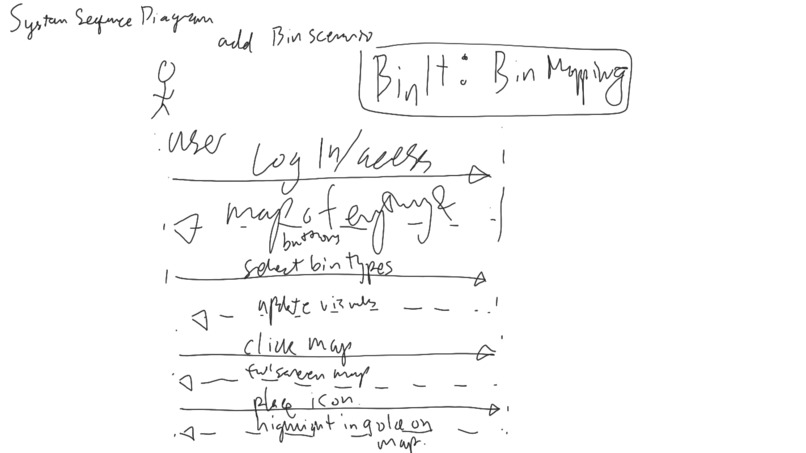 System Sequence Diagram
add Bin scenario
BinIt: Bin Mapping
user
Log In/access
map of everything &
buttons
select bin types
update visuals
click map
fullscreen map
place icon
highlight in gold on
map.